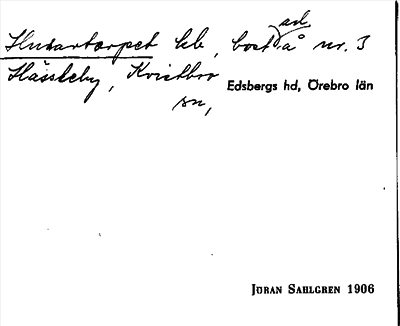 Husartorpet lb, bost ad å nr. 3
Hässleby, Kvistbro
sn,
Edsbergs hd, Örebro län
JÖRAN SAHLGREN 1906